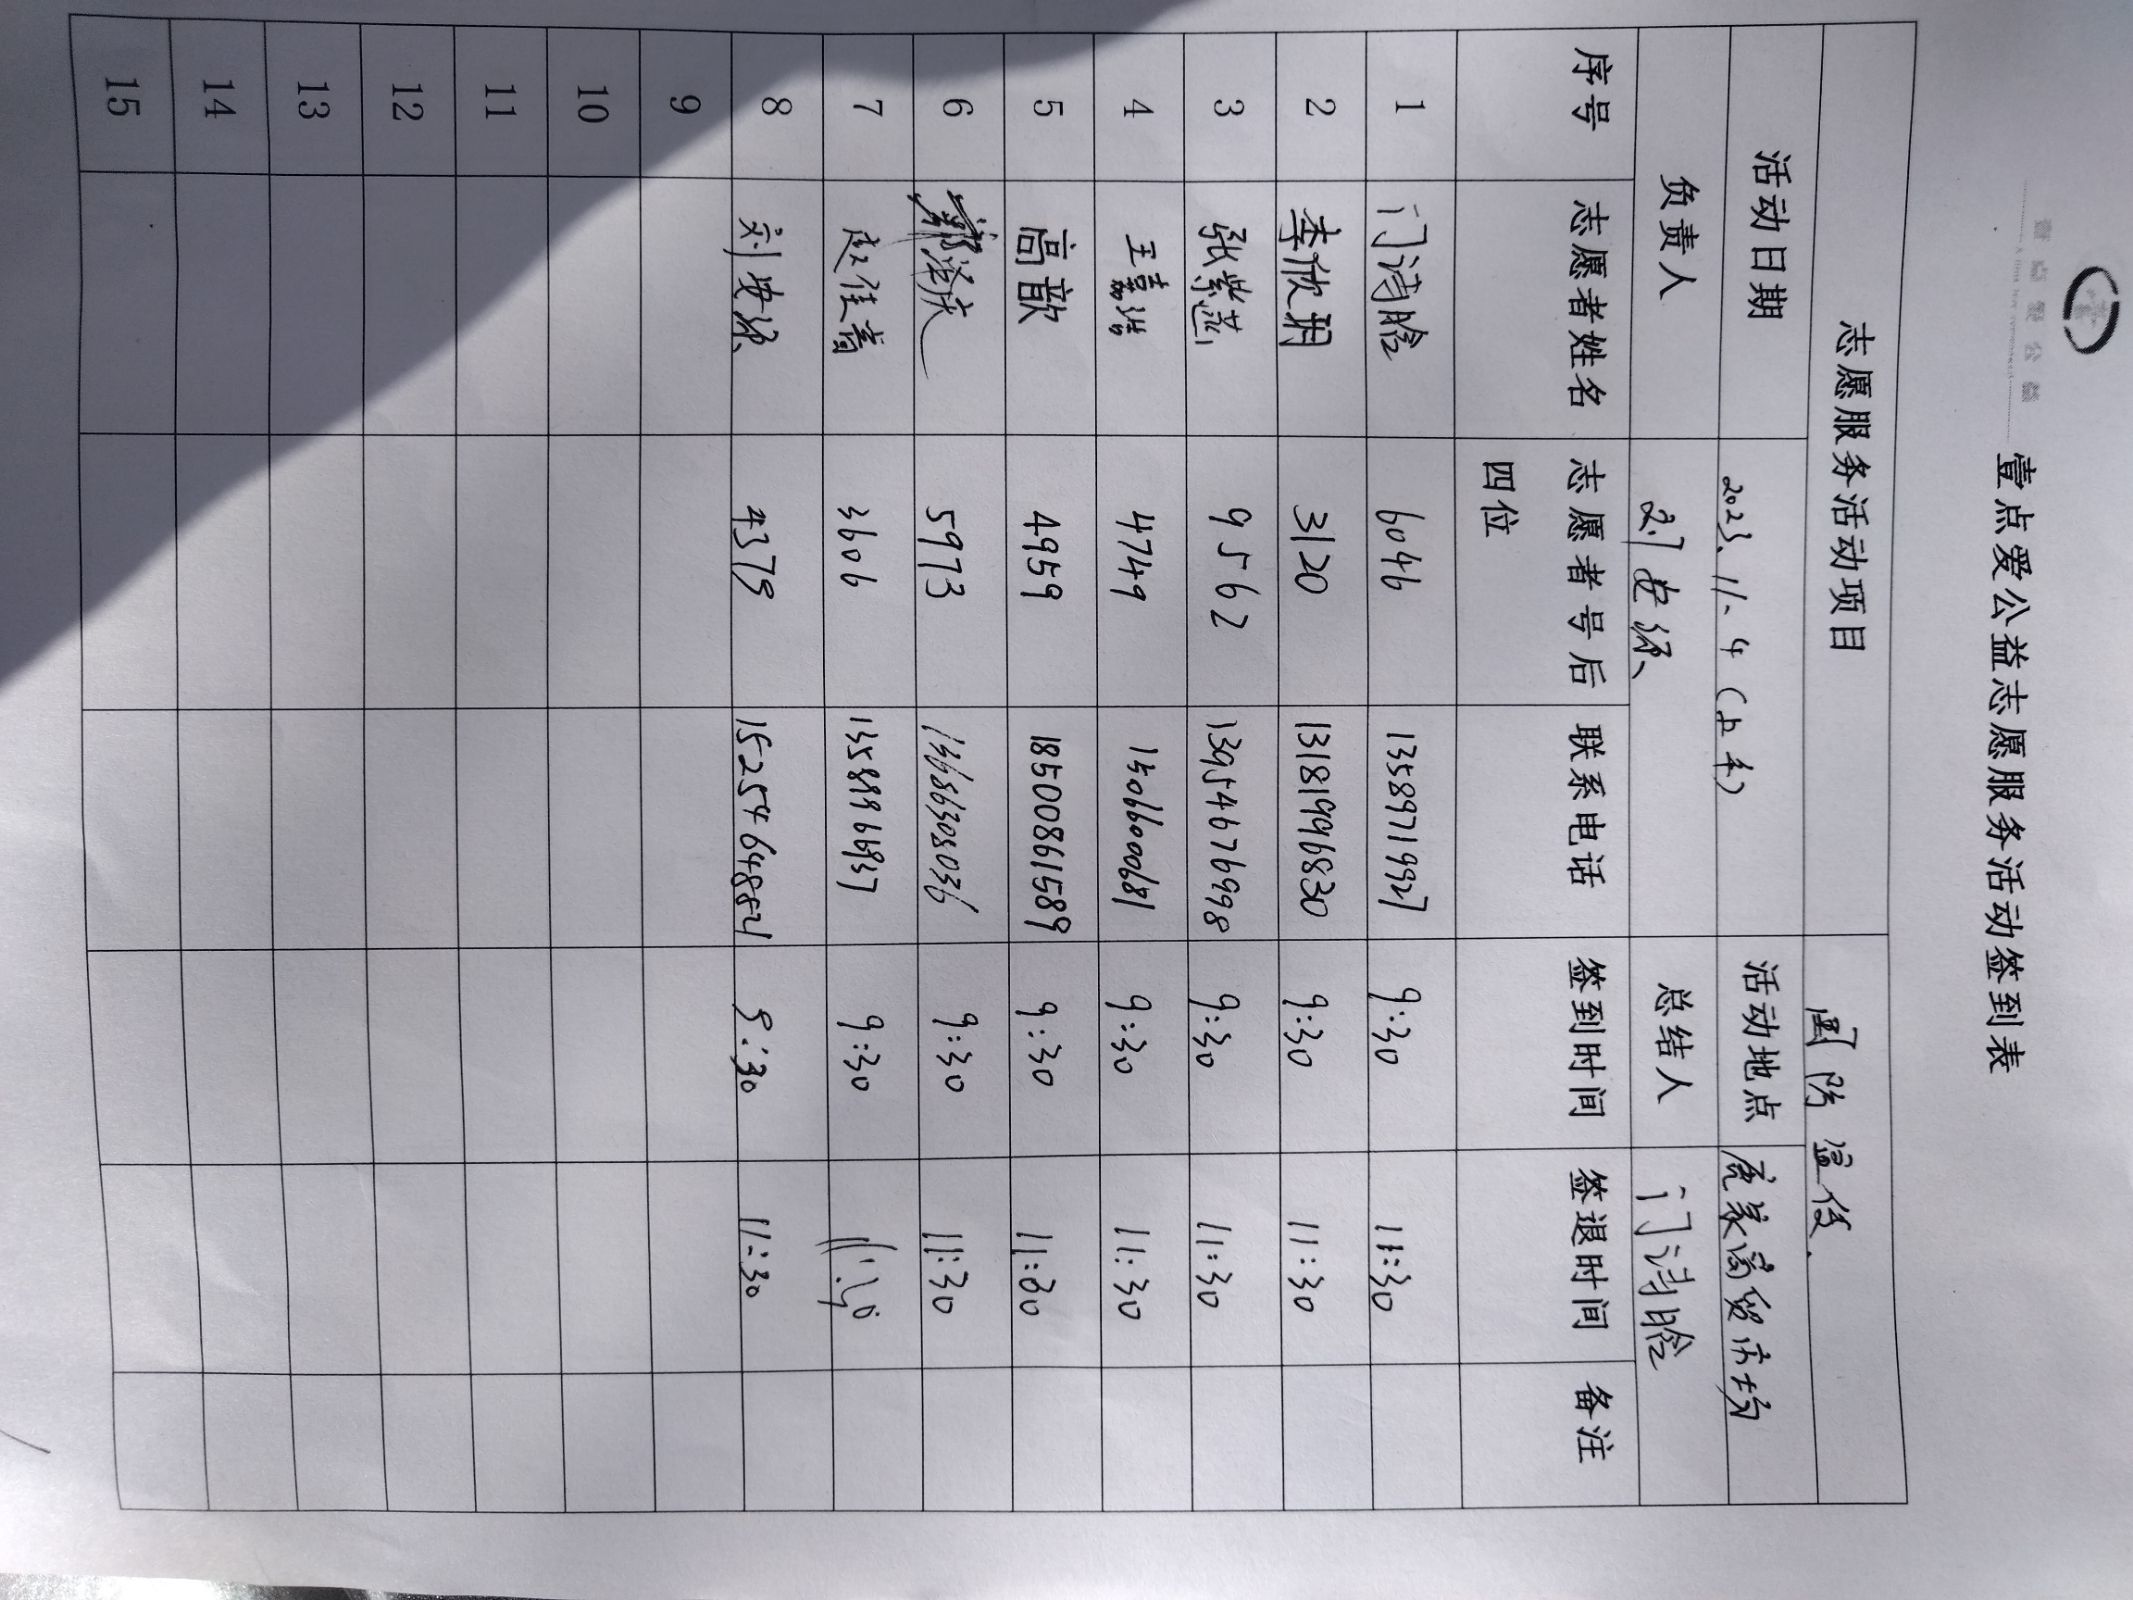 壹点爱公益
壹点爱公益志愿服务活动签到表
志愿服务活动项目 国防宣传
活动日期 2023.11.4(上午) 活动地点 商贸市场
负责人 刘安源 总结人 门诗晗
序号 志愿者姓名 志愿者号后四位 联系电话 签到时间 签退时间 备注
1 门诗晗 6046 13589719927 9:30 11:30
2 李欣玥 3120 13181996830 9:30 11:30
3 张紫菡 9562 13954676998 9:30 11:30
4 王嘉浩 4749 15066000681 9:30 11:30
5 高歆 4959 18500861589 9:30 11:30
6 5973 13686308036 9:30 11:30
7 赵佳音 3606 13589916937 9:30 11:30
8 刘安源 4379 15254648821 9:30 11:30
9
10
11
12
13
14
15